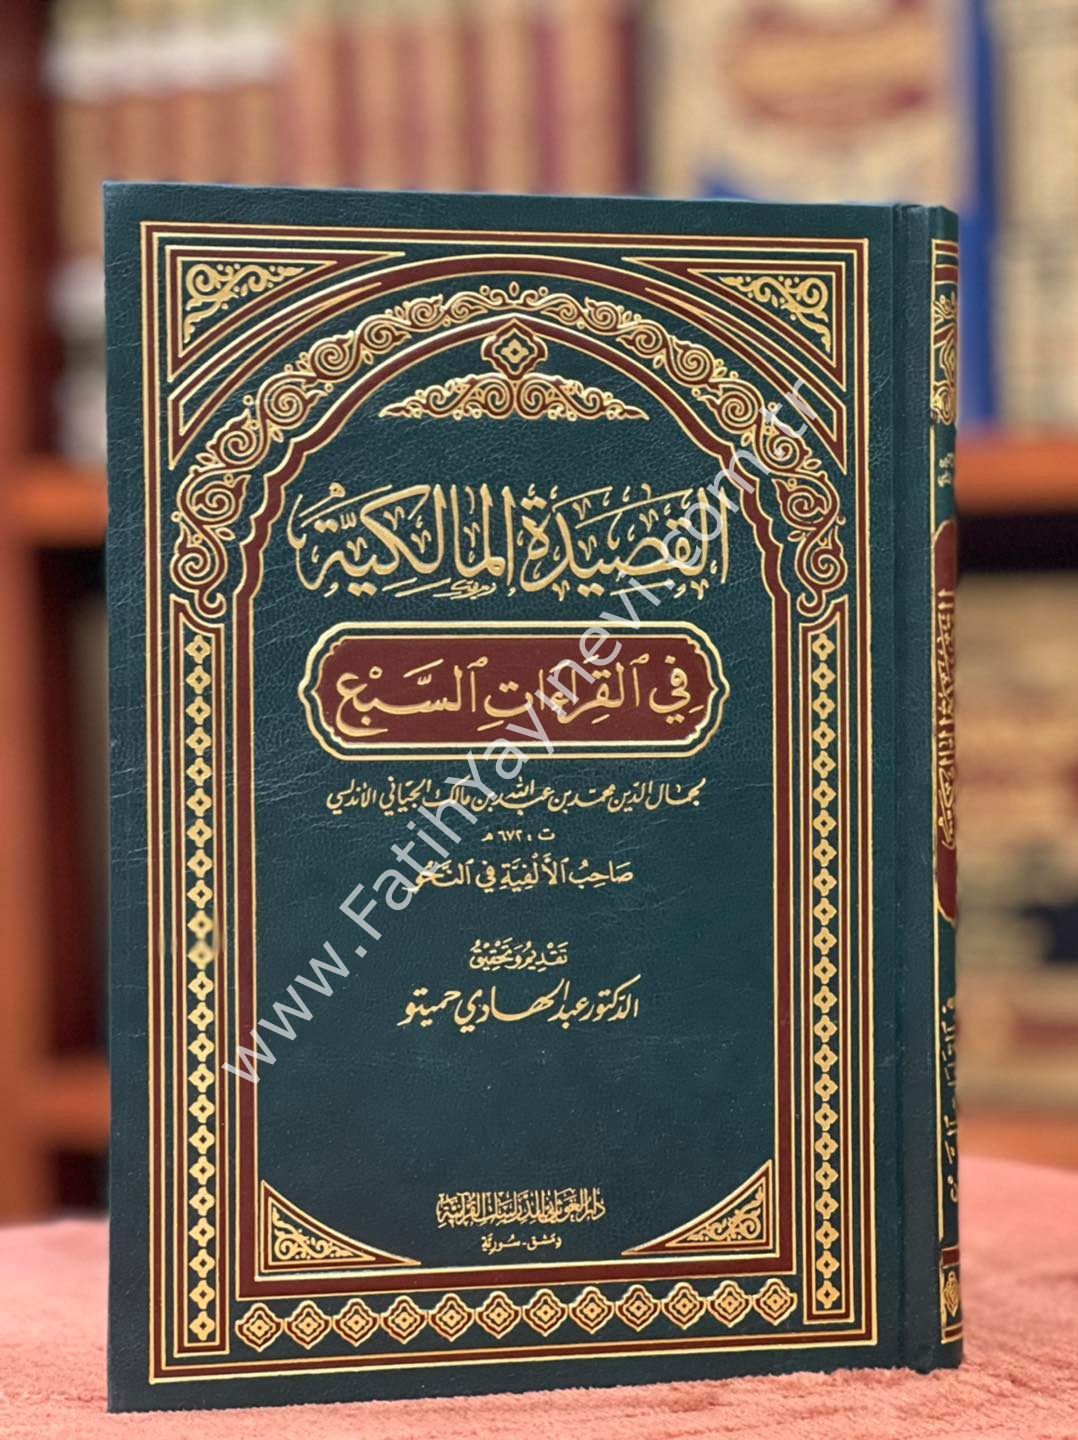 القصيدة المالكية
في القراءات السبع
لجمال الدين محمد بن عبد الله بن مالك الجياني الأندلسي
ت : ٦٧٢ هـ
صَاحِبُ الأَلْفِيَّةِ فِي النَّحْوِ
تقديم وتحقيق
الدكتور عبد الهادي حميتو
دار الغوثاني للدراسات القرآنية
دمشق - سورية
www.FatihYayinevi.com.tr